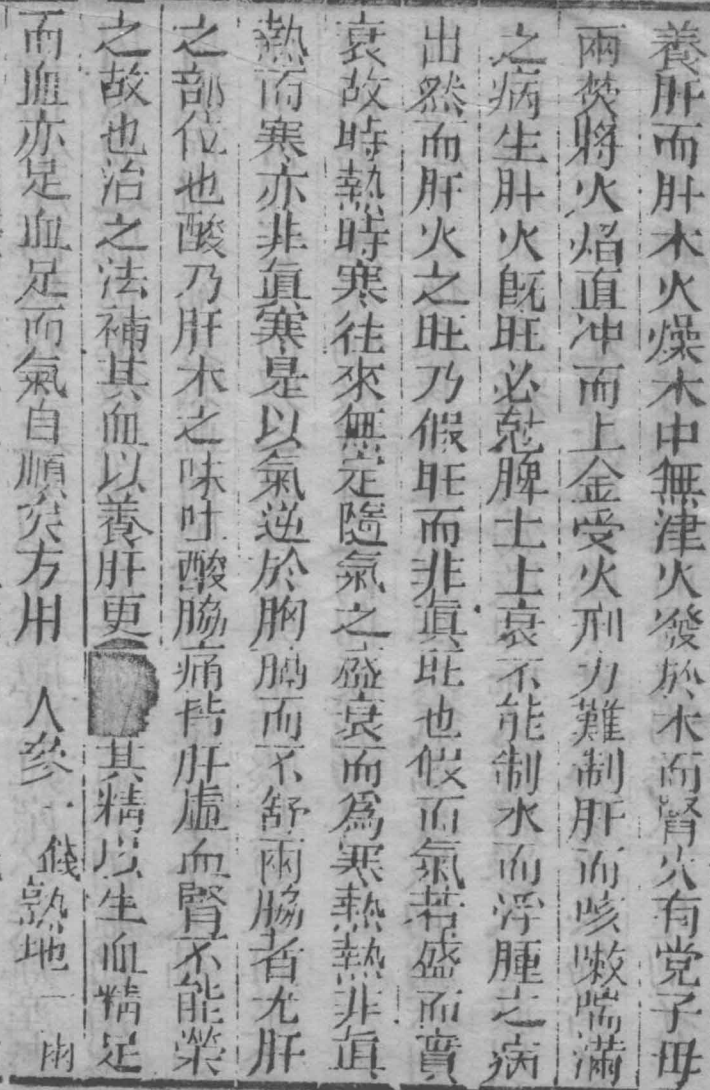 養肝而肝木火燥木中無津火發於木而腎火有党子母
兩焚將火焰直冲而上金受火刑力難制肝而咳嗽喘滿
之病生肝火既旺必尅脾土土衰不能制水而浮腫之病
出然而肝火之旺乃假旺而非眞旺也假而氣若盛而實
衰故時熱時寒往來無定隨氣之盛衰而爲寒熱熱非眞
熱而寒亦非眞寒是以氣逆於胸膈而不舒兩脇者尤肝
之部位也酸乃肝木之味吐酸脇痛皆肝虛血腎不能榮
之故也治之法補其血以養肝更其精以生血精足
而血亦足血足而氣自順矣方用 人參一錢熟地一兩